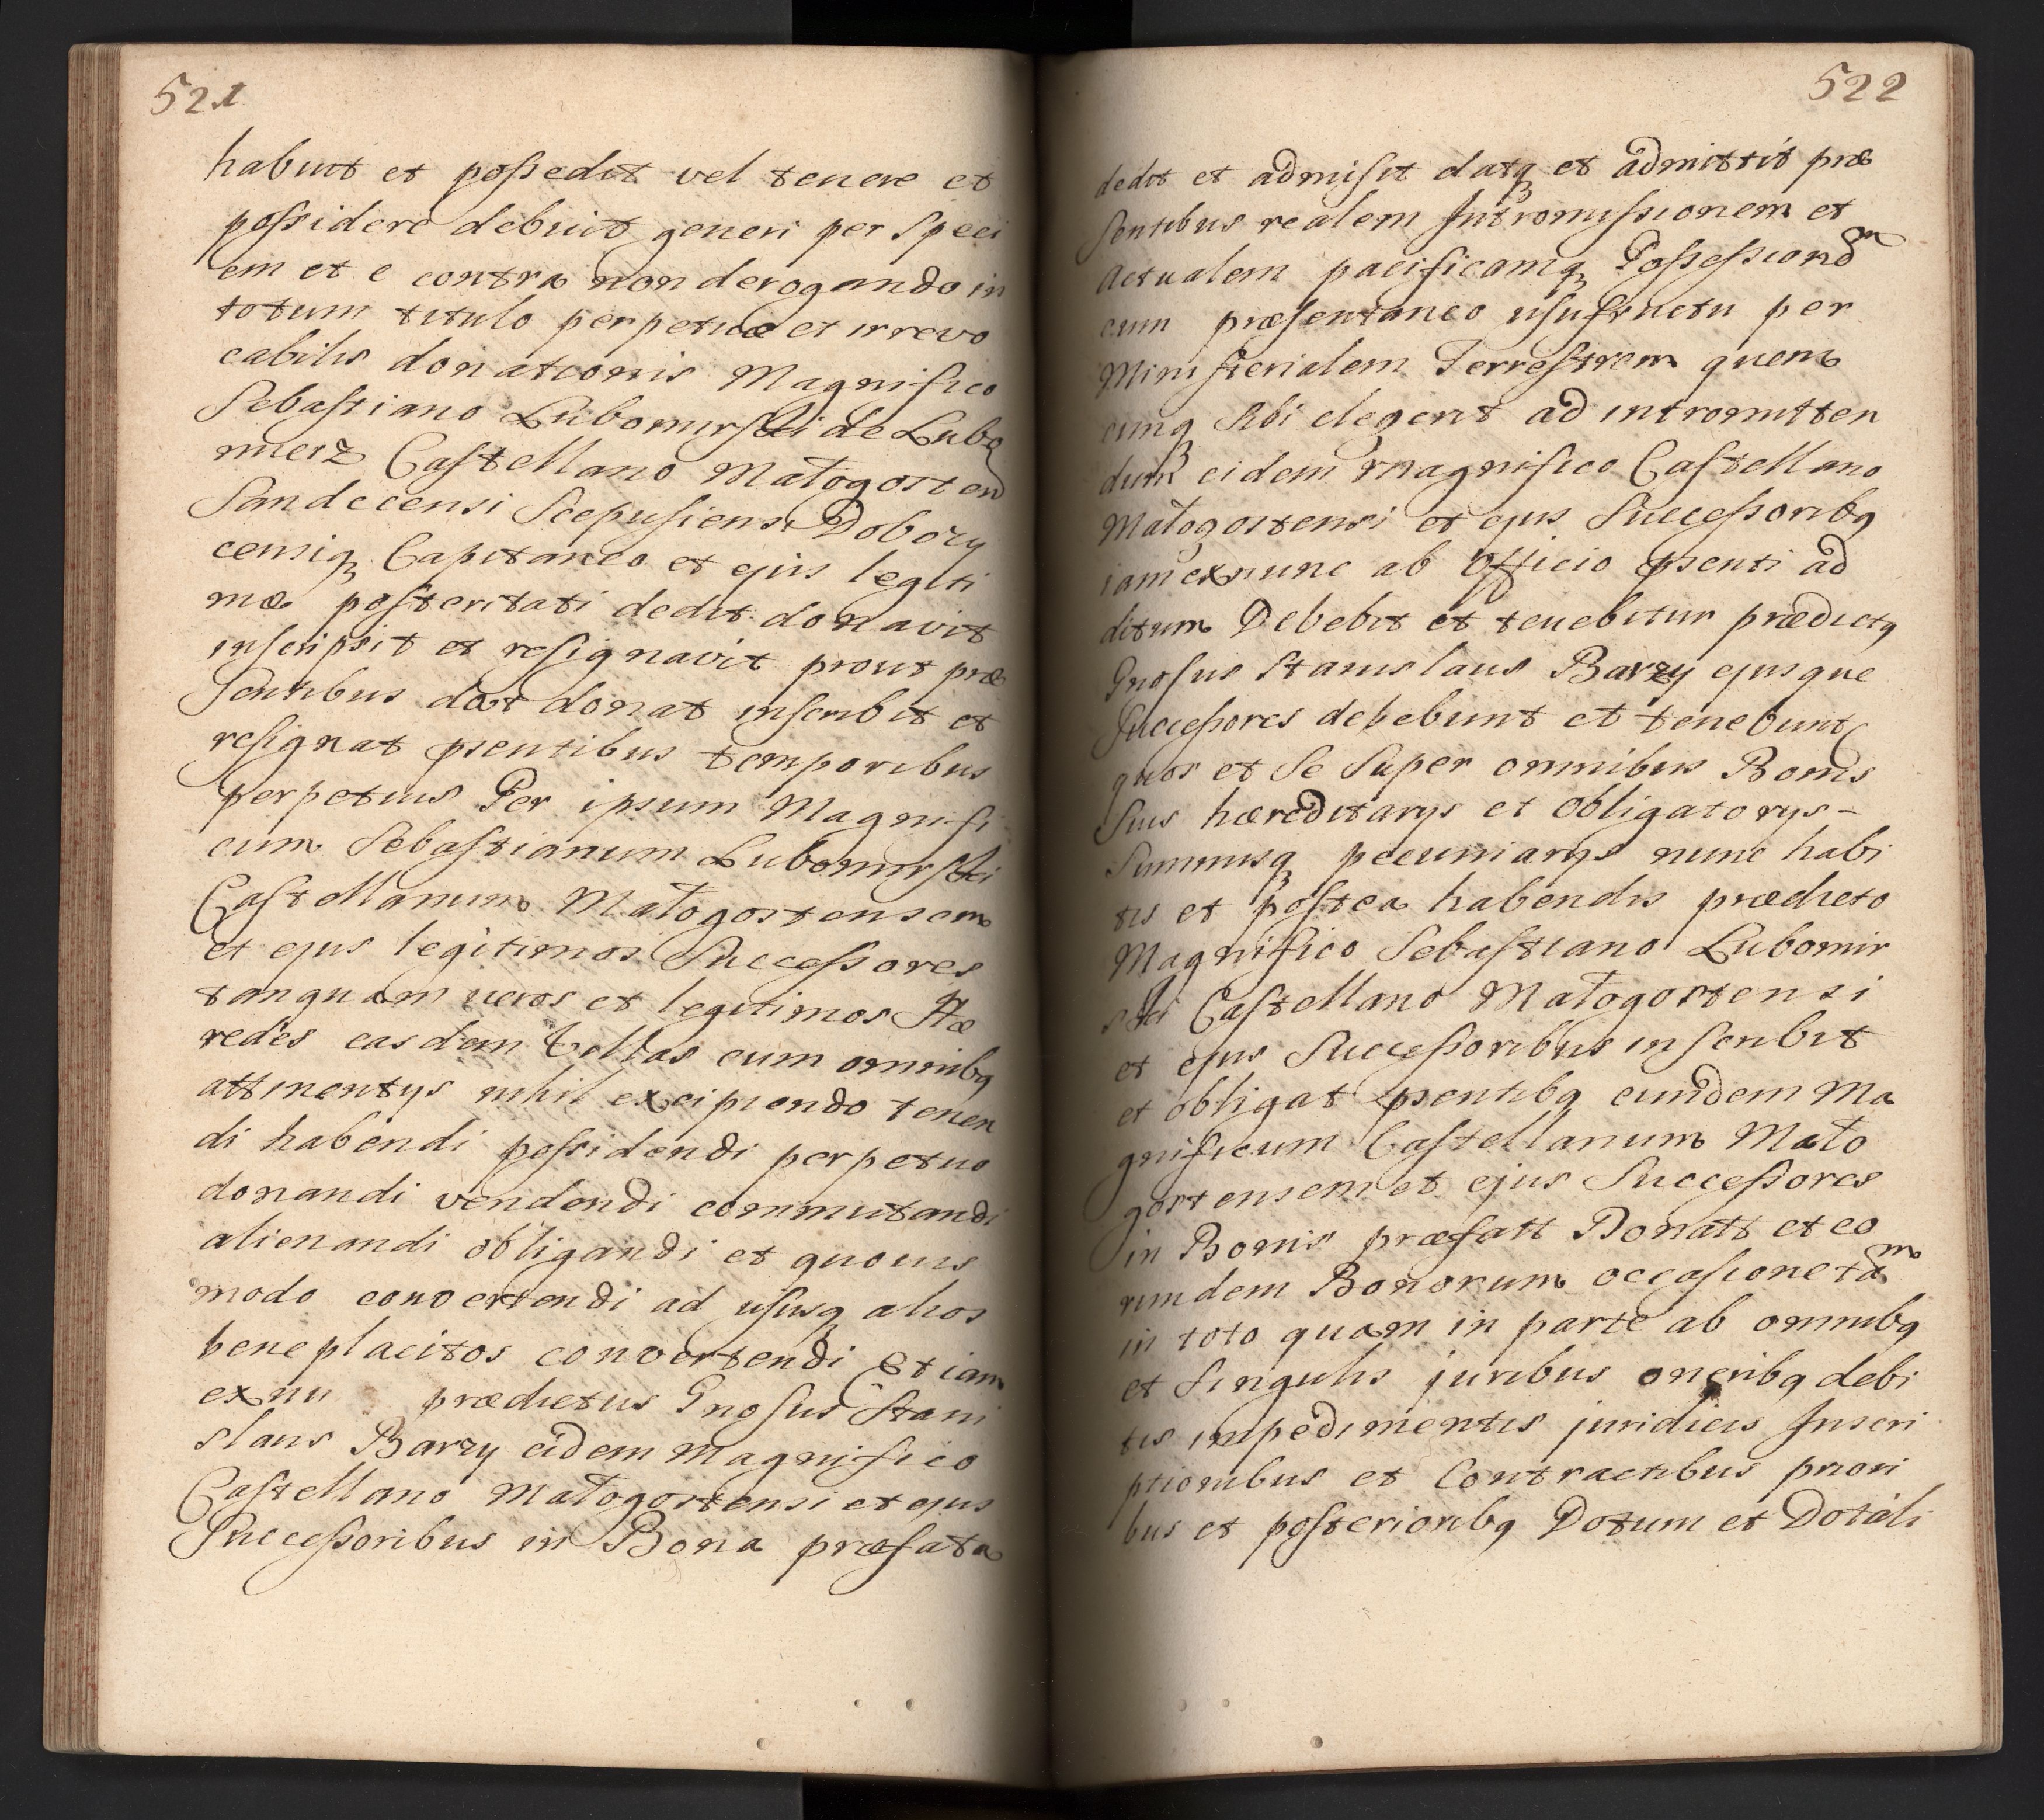 521
habuit et possedit vel tenere et
possidere debuit generi per Speci
em et e contra non derogando in
totum titulo perpetuæ et irrevo
cabilis donationis Magnifico
Sebastiano Lubomirski de Lubo
mierz Castellano Małogosten
Sandecensi Scepusiensi Dobczy
censiq Capitaneo et ejus legiti
mæ posteritati dedit donavit
inscripsit et resignavit prout præ
sentibus dat donat inscribit et
resignat psentibus temporibus
perpetuis Per ipsum Magnifi
cum Sebastianum Lubomirski
Castellanum Małogostensem
et ejus legitimos Successores
tanquam veros et legitimos Hæ
redes easdem Villas cum omnibq
attinentys nihil excipiendo tenen
di habendi possidendi perpetuo
donandi vendendi commutandi
alienandi obligandi et quovis
modo convertendi ad ususq alios
beneplacitos convertendi Et iam
exnu prædictus Gnosus Stani
slaus Barzy eidem Magnifico
Castellano Małogostensi et ejus
Successoribus in Bona præfata
522
dedit et admisit datq et admittit præ
sentibus realem Intromissionem et
Actualem pacificamq Possessionem
cum præsentaneo usufructu per
Ministerialem Terrestrem quem
cunq Sibi elegerit ad intromitten
dum eidem Magnifico Castellano
Małogostensi et ejus Successoribq
iam exnunc ab Officio psenti ad
ditum Debebit et tenebitur prædictq
Gnosus Stanislaus Barzy ejusque
Successores debebunt et tenebunt
quos et Se Super omnibus Bonis
Suis hæreditarys et obligatorys -
Summisq pecuniarys nunc habi
tis et postea habendis prædicto
Magnifico Sebastiano Lubomir
ski Castellano Małogostensi
et ejus Successoribus inscribit
et obligat psentibq eundem Ma
gnificum Castellanum Mało
gostensem et ejus Successores
in Bonis præfatt Donatt et eo
rundem Bonorum occasione tam
in toto quam in parte ab omnibq
et Singulis juribus oneribq debi
tis impedimentis juridicis Inscri
ptionibus et Contractibus priori
bus et posterioribq Dotum et Dotali